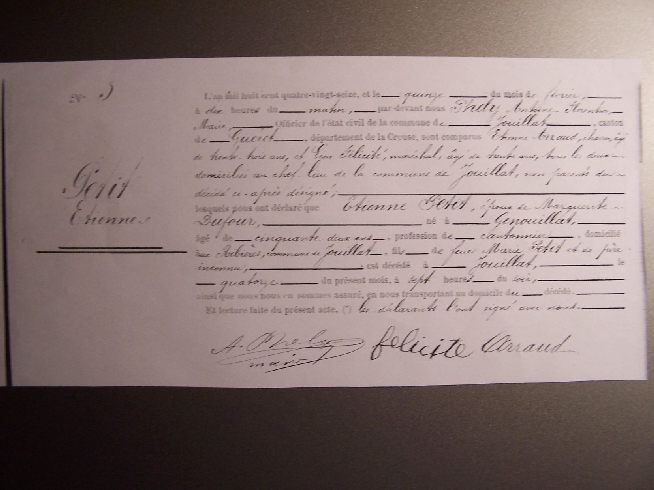 No 3
Petit
Etienne
L'an mil huit cent quatre-vingt-seize, et le quinze du mois de février,
à dix heures du matin, par-devant nous Antoine Florentin
Marie, Officier de l'état civil de la commune de Jouillat, canton
de Guéret, département de la Creuse, sont comparus Etienne Arraud, âgé
de trente-trois ans, et Félicité, maréchal, âgé de trente ans, tous les deux
domiciliés au chef lieu de la commune de Jouillat, non parents du
décédé ci-après désigné,
lesquels nous ont déclaré que Etienne Petit, époux de Marguerite
Dufour, né à Genouillat,
âgé de cinquante deux ans, profession de cantonnier, domicilié
aux commune de Jouillat, fils de feue Marie Petit et de père
inconnu, est décédé à Jouillat, le
quatorze du présent mois, à sept heures du soir,
ainsi que nous nous en sommes assuré, en nous transportant au domicile du décédé.
Et lecture faite du présent acte, (1) les déclarants l'ont signé avec nous.
A. felicite Arraud
maire